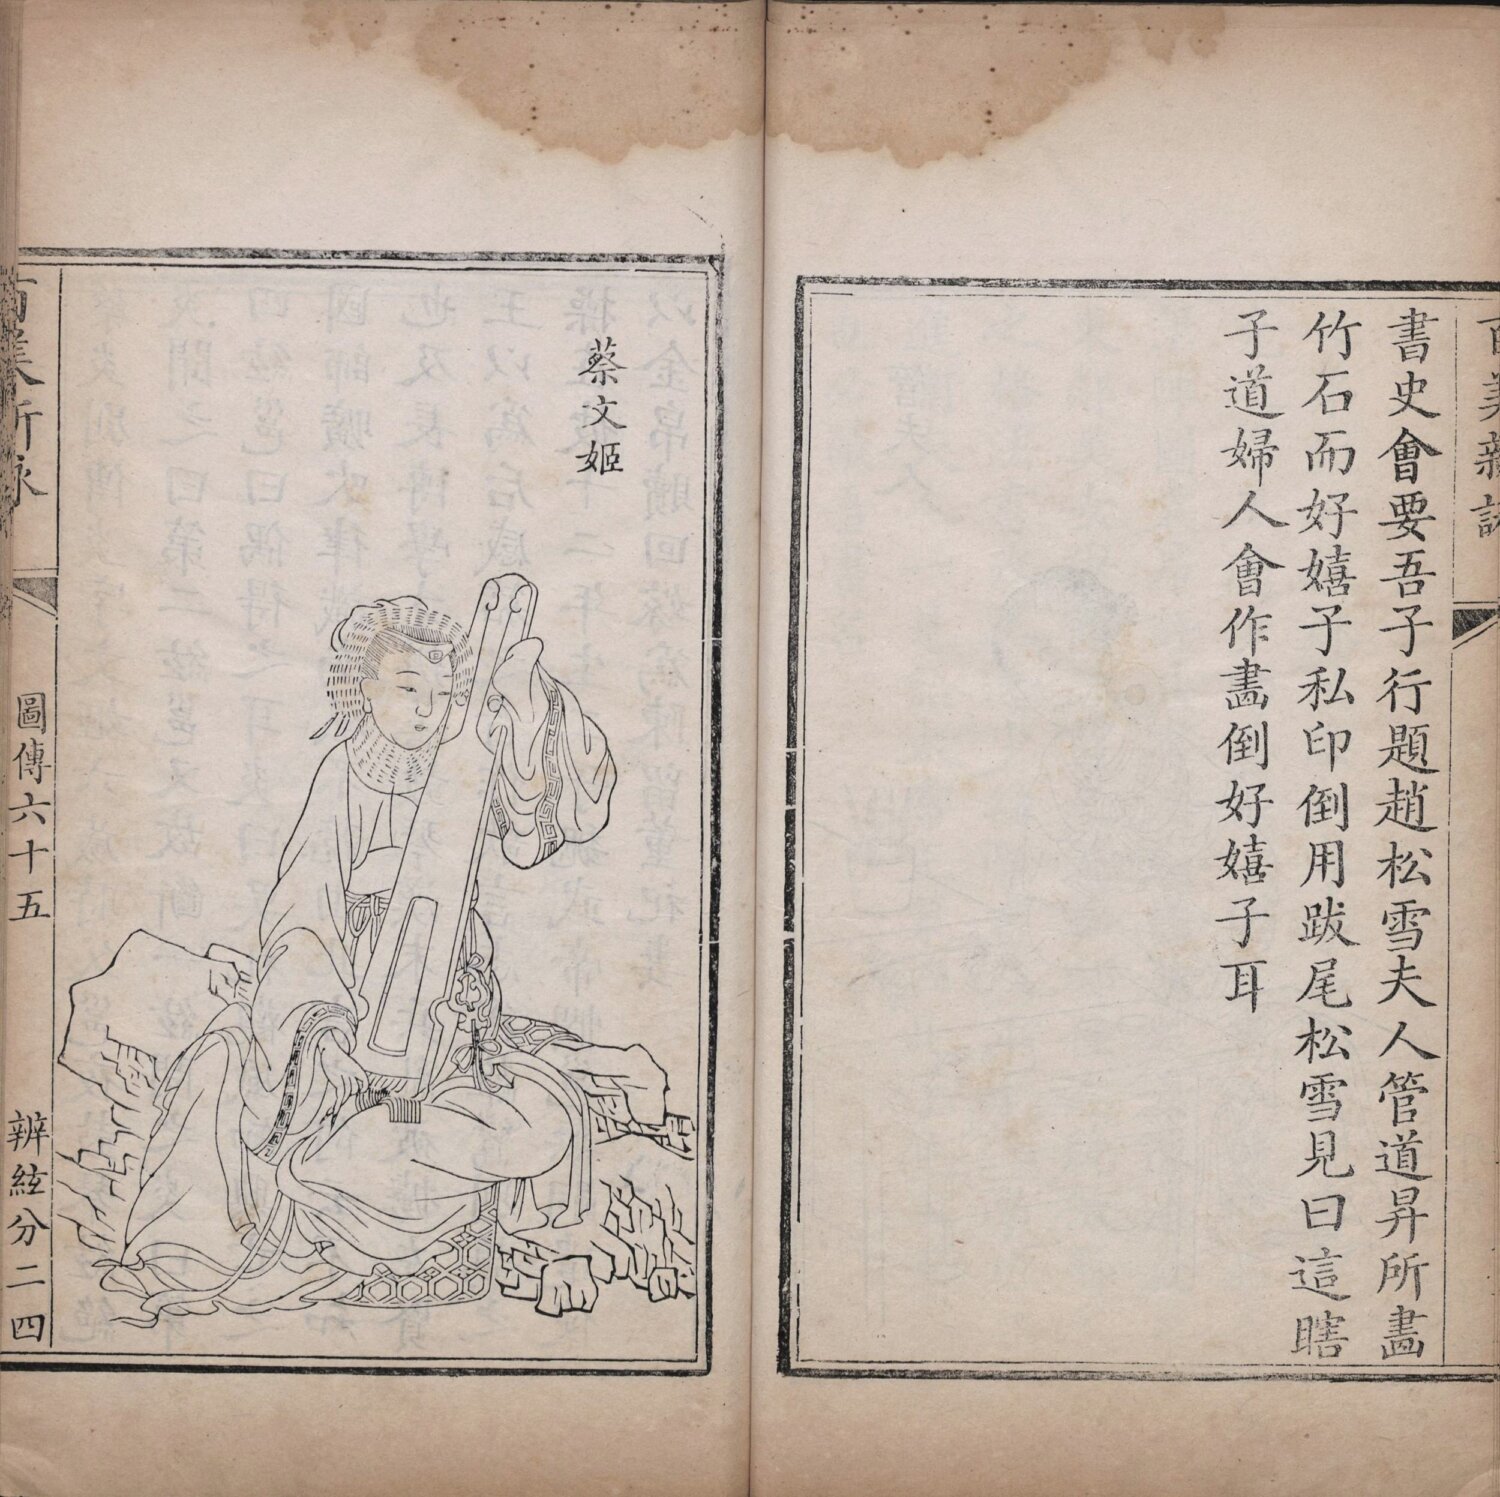 百美新詠
書史會要吾子行題趙松雪夫人管道昇所畫
竹石而好嬉子私印倒用跋尾松雪見曰這瞎
子道婦人會作畫倒好嬉子耳
蔡文姬
百美新詠
圖傳六十五
辨絃分二四